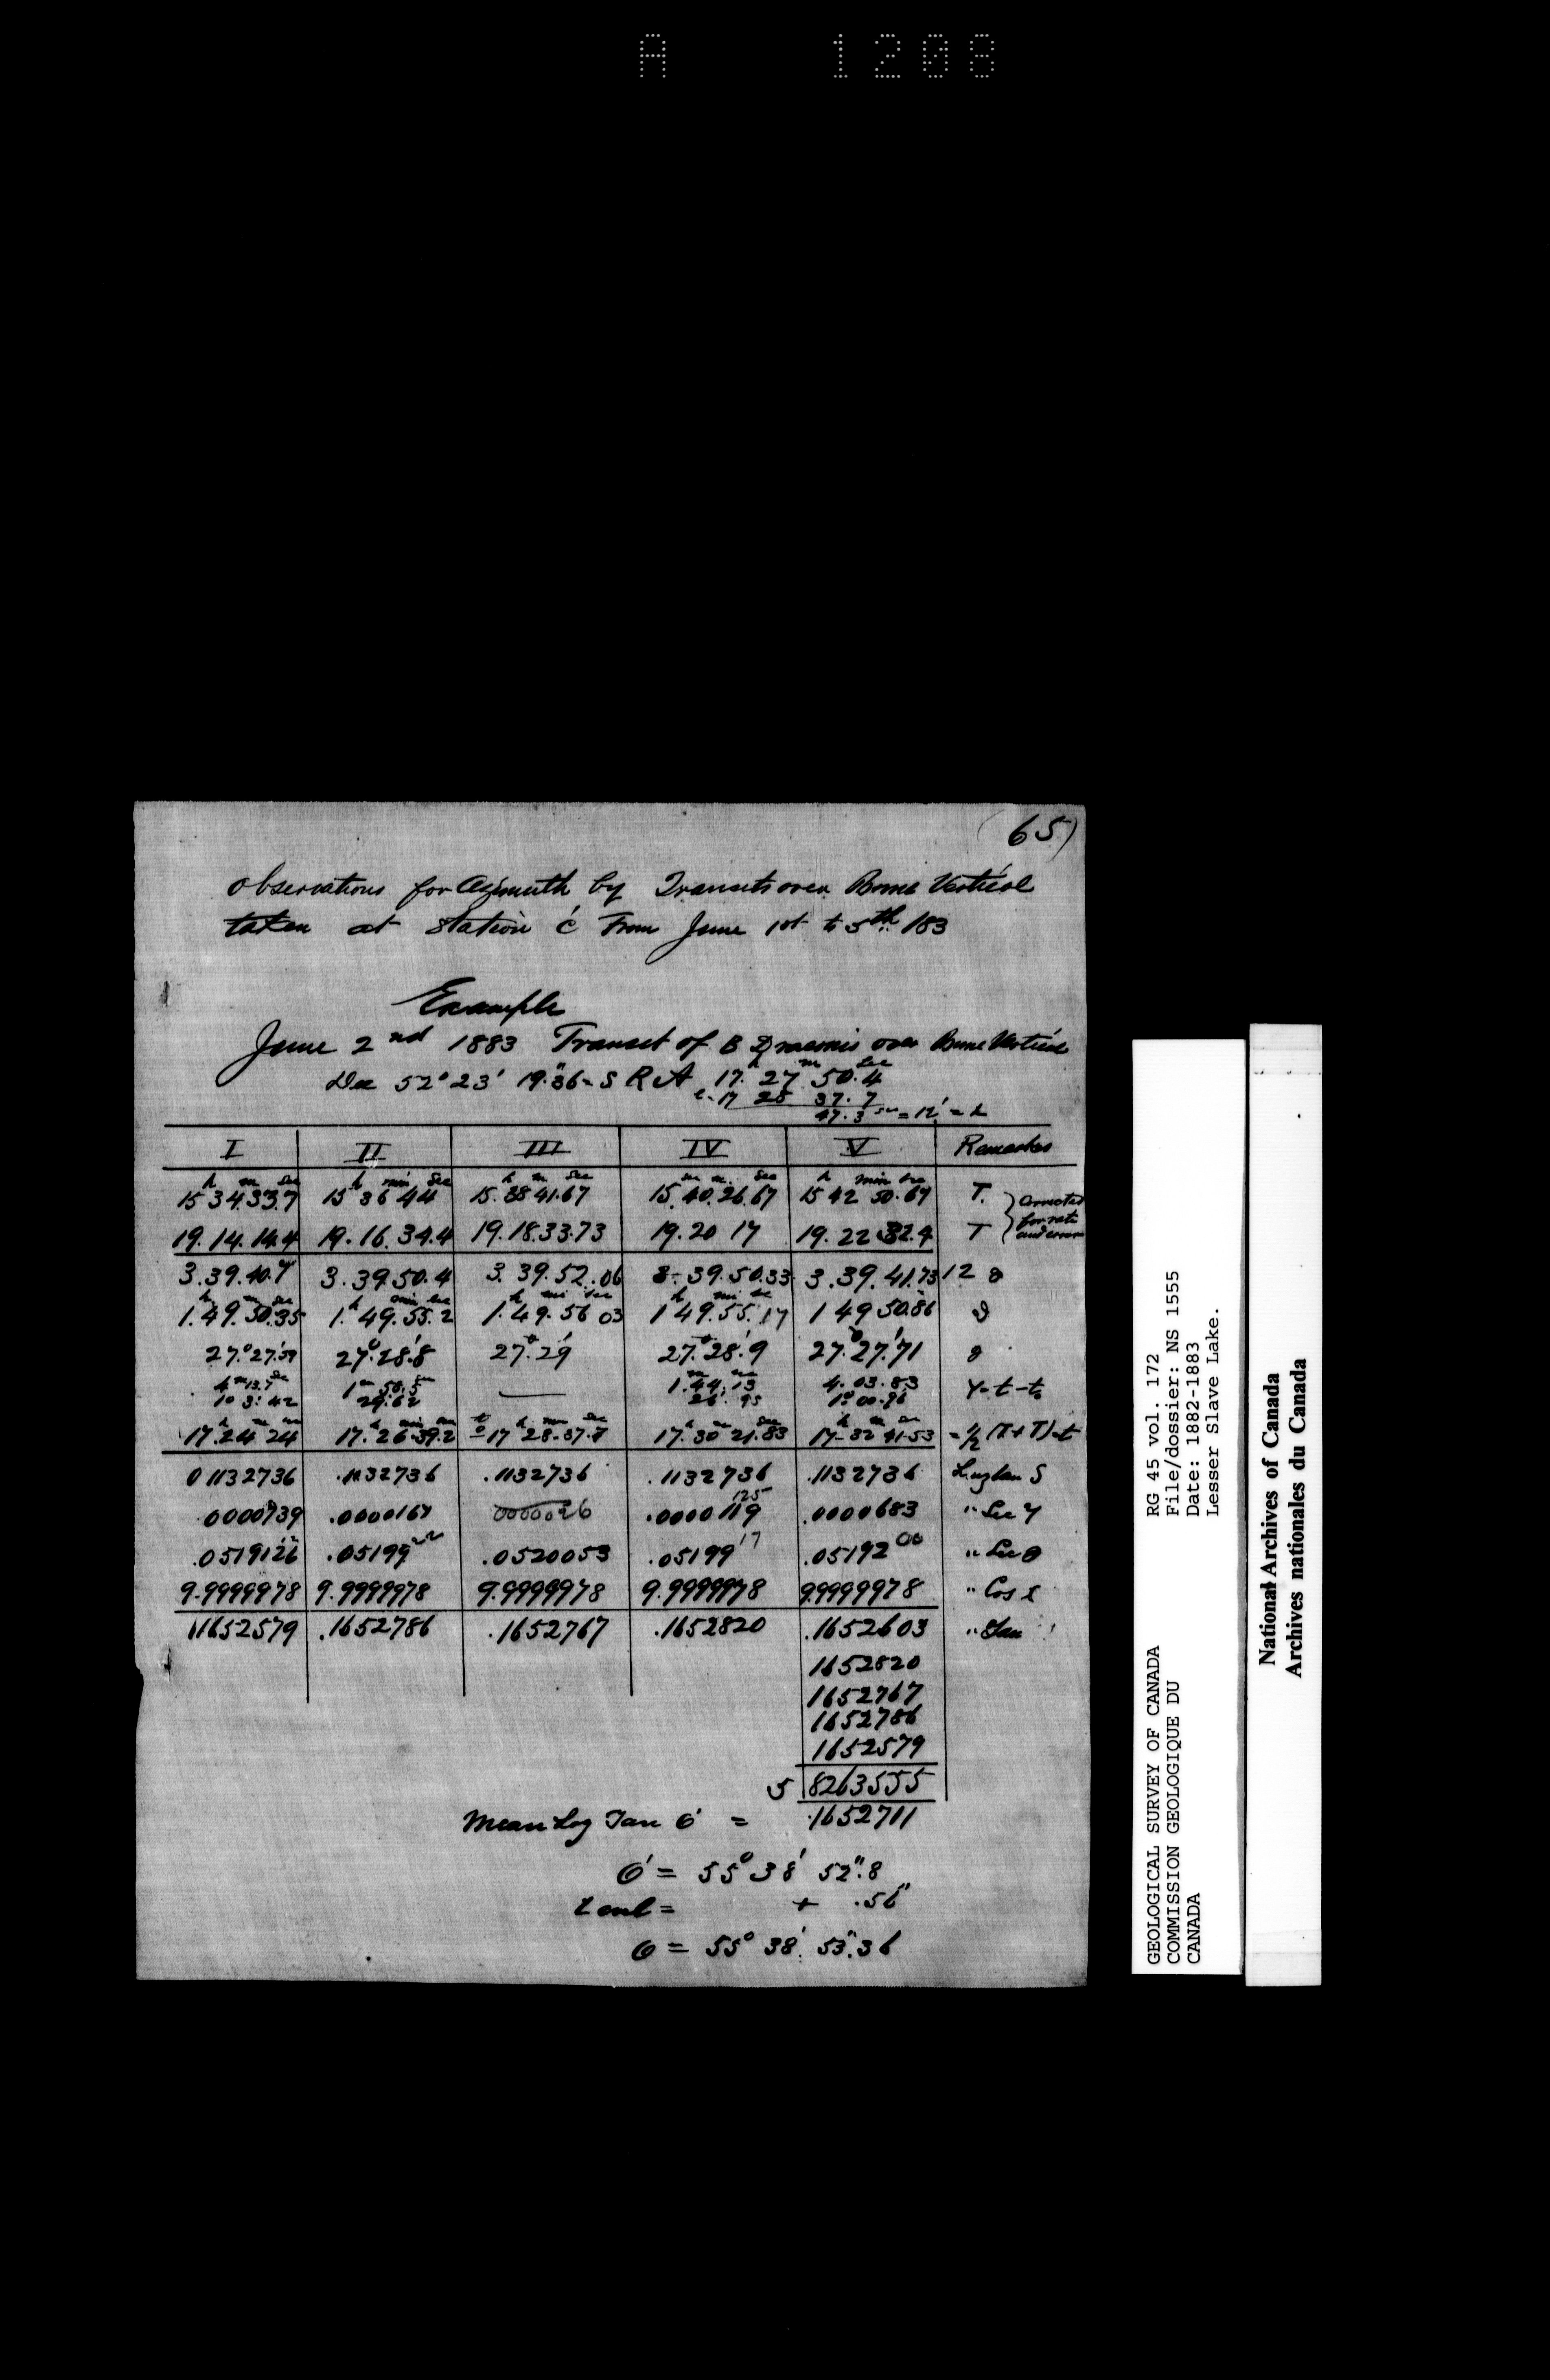 A 1208
(65)
Observations for Azimuth by Transits over Prime Vertical
taken at Station C From June 1st to 5th /83
Example
June 2nd 1883 Transit of B Draconis over Prime Vertical
Dec 52° 23' 19."36 = S R A 17.h 27m 50.4sec
17 28 37.7
47.3sec = 12' = 
I II III IV V Remarks
h m sec h min sec h m sec m m sec h min sec
15 34.33.7 15 36 44 15.38 41.67 15.40.26.67 15 42 50.67 T. } Corrected
19.14.14.4 19.16.34.4 19.18.33.73 19.20 17 19.22 32.4 T for rate and error
3.39.40.7 3.39.50.4 3.39.52.06 3-39.50.33 3.39.41.73 12 θ
1.h49.m50.sec35 1.h49.min55.sec2 1.h49.mi56sec03 1h49.mi55.sec17 1 49 50.86 θ
27.°27.'59 27°.28.'8 27.°29' 27.°28.'9 27.°27.'71 θ
4m13.7sec 1m50.5sec — 1.m44.sec13 4.03.83 Y=t-to
1° 3'.42 27.62 26'.95 1°00.96
17.h24m24sec 17.h26min39.2sec to=17h28.m37.7sec 17.h30m21.83sec 17h-32m41.53sec = ½(T+T)=t
0 1132736 .1132736 .1132736 .1132736 .1132736 Log tan S
.0000739 .0000167 0000026 .0000119 125 .0000683 " Sec Y
.0519126 .05199 22 .0520053 .05199 17 .05192 00 " Sec θ
9.9999978 9.9999978 9.9999978 9.9999978 9.9999978 " Cos
.1652579 .1652786 .1652767 .1652820 .1652603 " Tan
1652820
1652767
1652786
1652579
5 8263555
Mean Log Tan O' = .1652711
O' = 55° 38' 52".8
Level = + .56"
O = 55° 38'. 53".36
GEOLOGICAL SURVEY OF CANADA RG 45 vol. 172
COMMISSION GEOLOGIQUE DU File/dossier: NS 1555
CANADA Date: 1882-1883
Lesser Slave Lake.
National Archives of Canada
Archives nationales du Canada